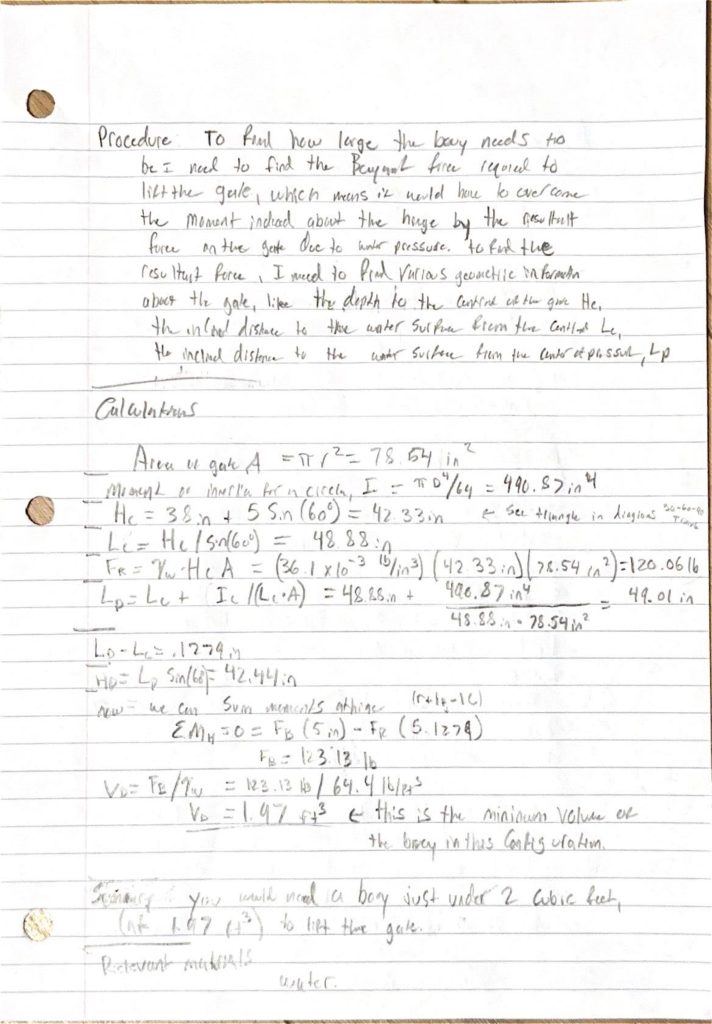 Procedure To find how large the bouy needs to
be I need to find the Bouyant force required to
lift the gate, which means it would have to overcome
the moment induced about the hinge by the resultant
force on the gate due to water pressure. to find the
resultant force, I need to find various geometric information
about the gate, like the depth to the centroid of the gate Hc,
the inclined distance to the water surface from the centroid Lc,
the inclined distance to the water surface from the center of pressure, Lp
Calculations
Area of gate A = π r² = 78.54 in²
Moment of inertia for a circle, I = π D⁴/64 = 490.87 in⁴
Hc = 38 in + 5 Sin(60°) = 42.33 in ← See triangle in diagram 30-60-90
Lc = Hc / Sin(60°) = 48.88 in
FR = γw·Hc A = (36.1 x10⁻³ lb/in³) (42.33 in) (78.54 in²) = 120.06 lb
Lp = Lc + Ic /(Lc·A) = 48.88 in + 490.87 in⁴ / 48.88 in · 78.54 in² = 49.01 in
Lp - Lc = .1279 in
Hp = Lp Sin(60) = 42.44 in
now we can sum moments at hinge (r+lp-lc)
ΣMH = 0 = FB (5 in) - FR (5.1279)
FB = 123.13 lb
VD = FB/γw = 123.13 lb / 64.4 lb/ft³
VD = 1.97 ft³ ← this is the minimum volume of
the bouy in this configuration.
Summary: you would need a bouy just under 2 cubic feet,
1.97 ft³) to lift the gate.
Relevant materials
water.